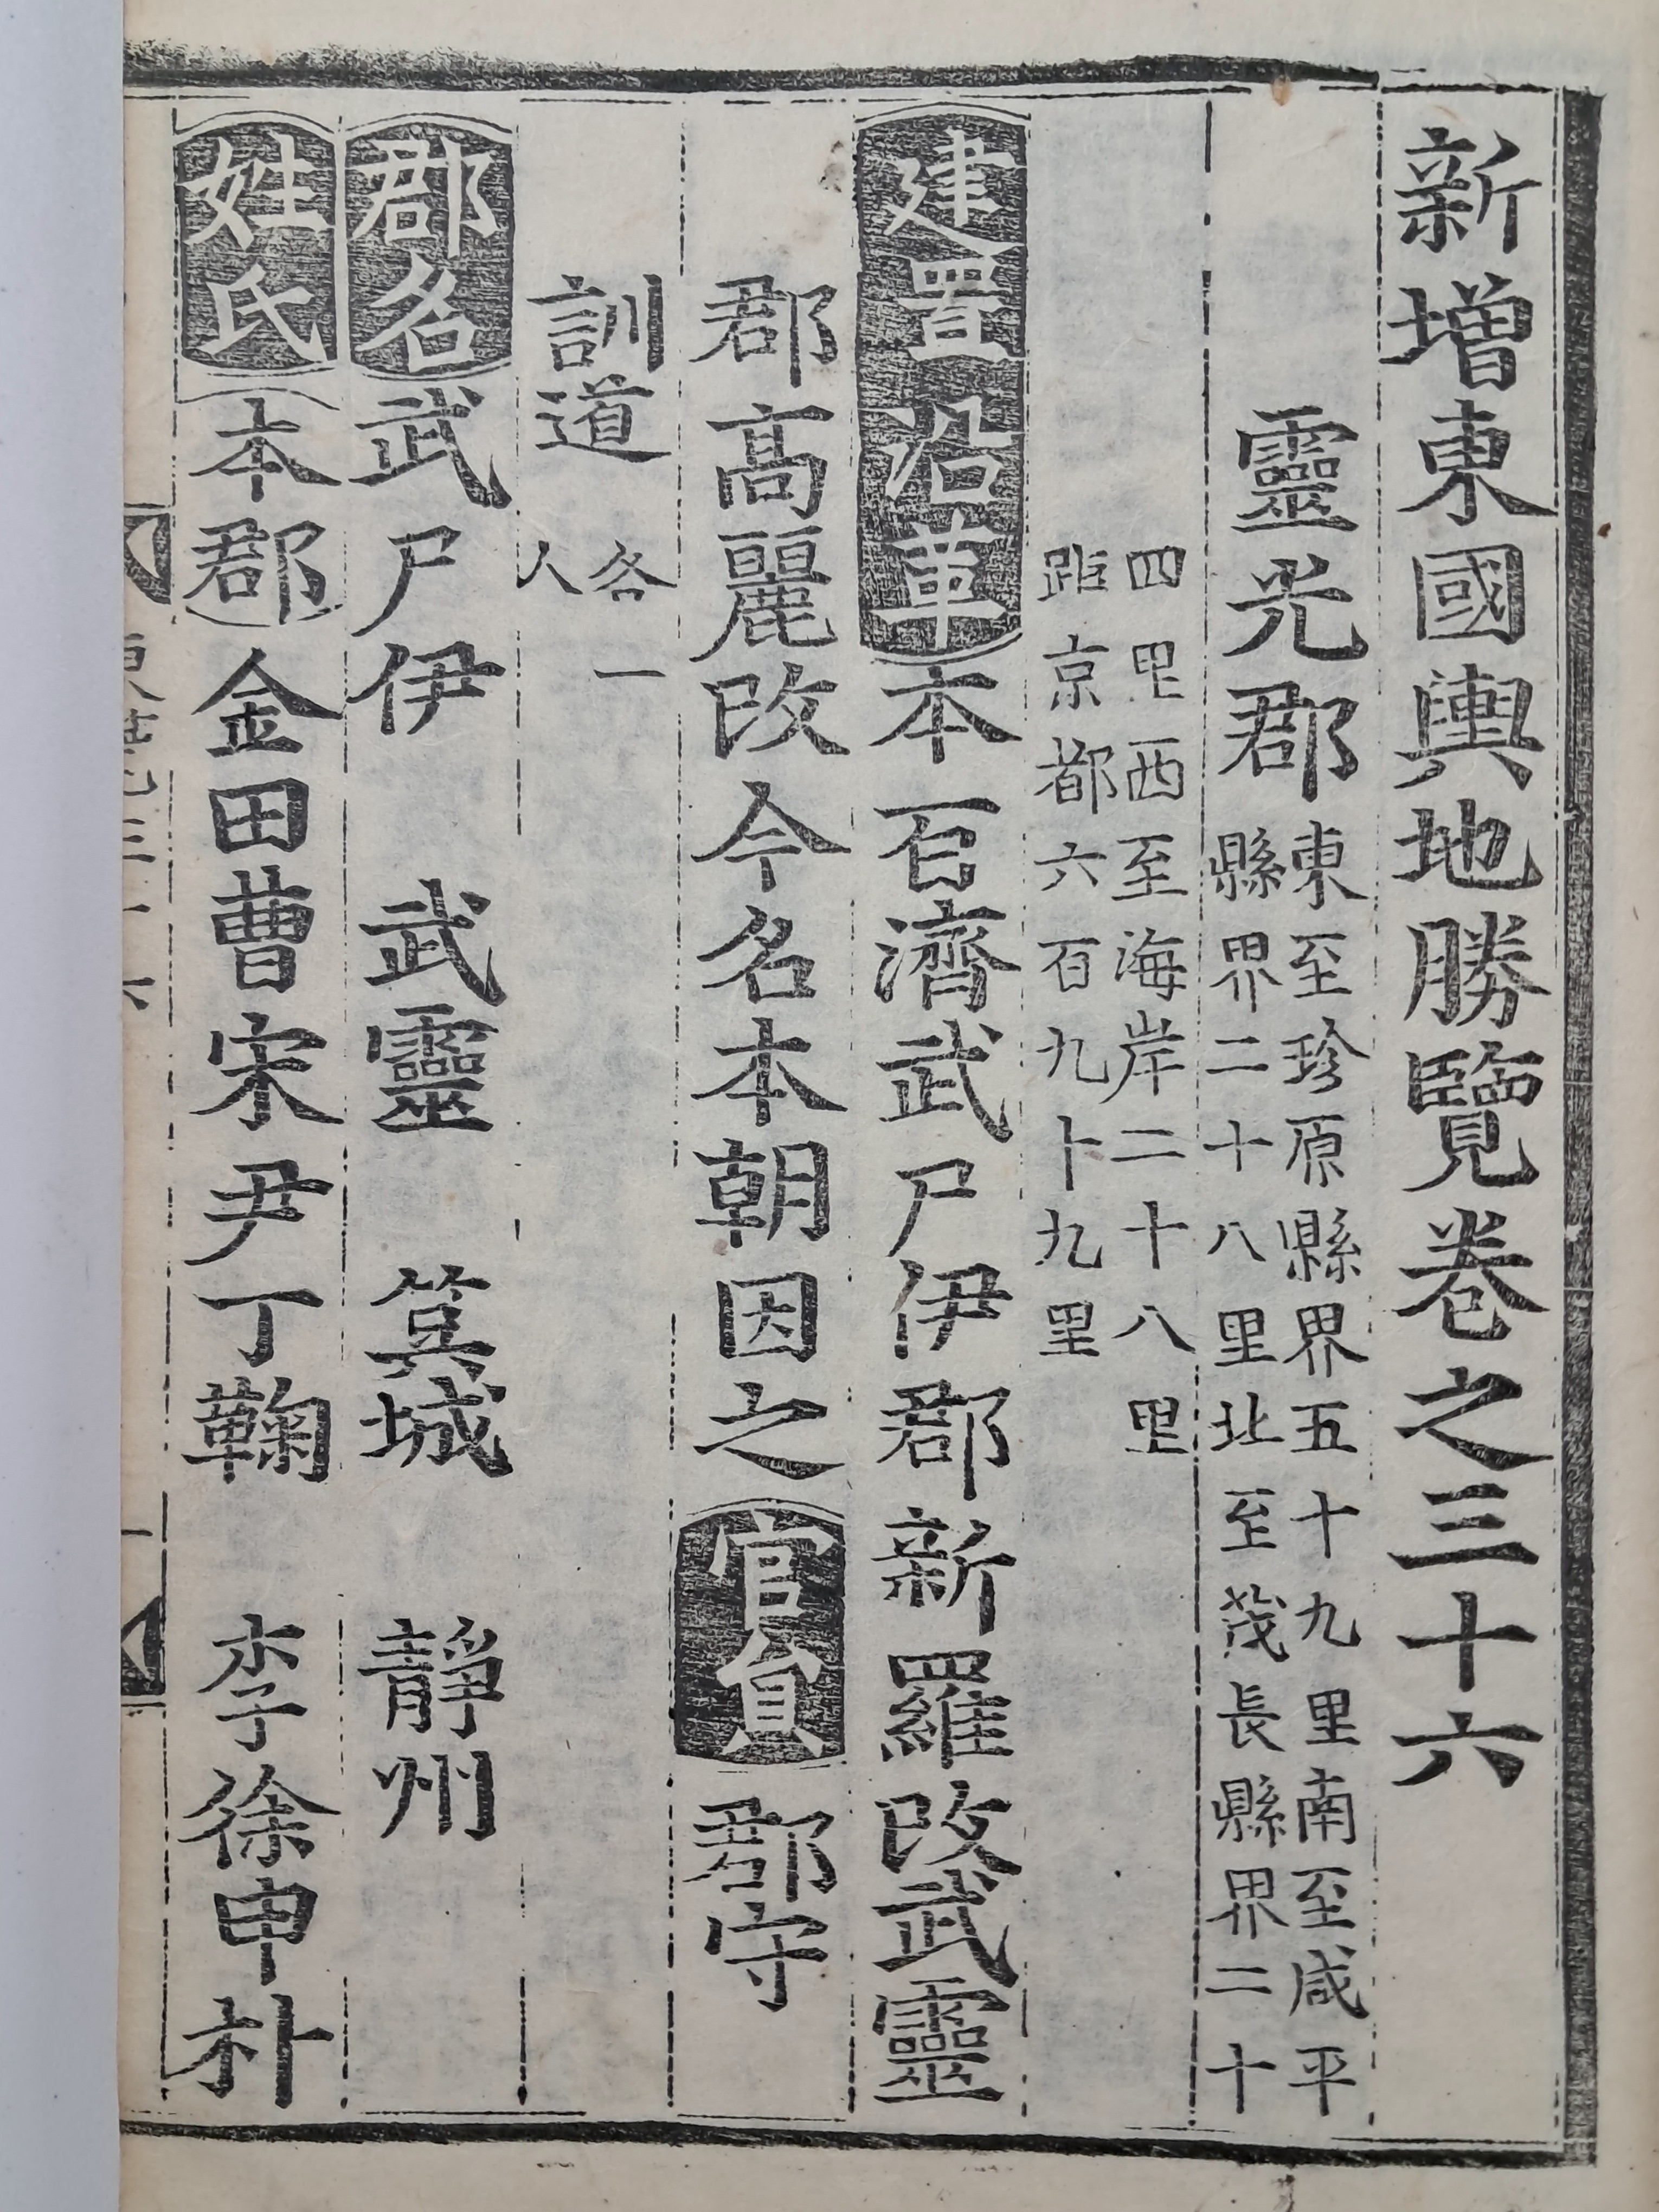 新增東國輿地勝覽卷之三十六
靈光郡 東至珍原縣界五十九里南至咸平
縣界二十八里北至茂長縣界二十
四里西至海岸二十八里
距京都六百九十九里
建置沿革 本百濟武尸伊郡新羅改武靈
郡高麗改今名本朝因之 官員 郡守
訓道 各一
人
郡名 武尸伊 武靈 箕城 靜州
姓氏 本郡 金田曹宋尹丁鞠 李徐申朴